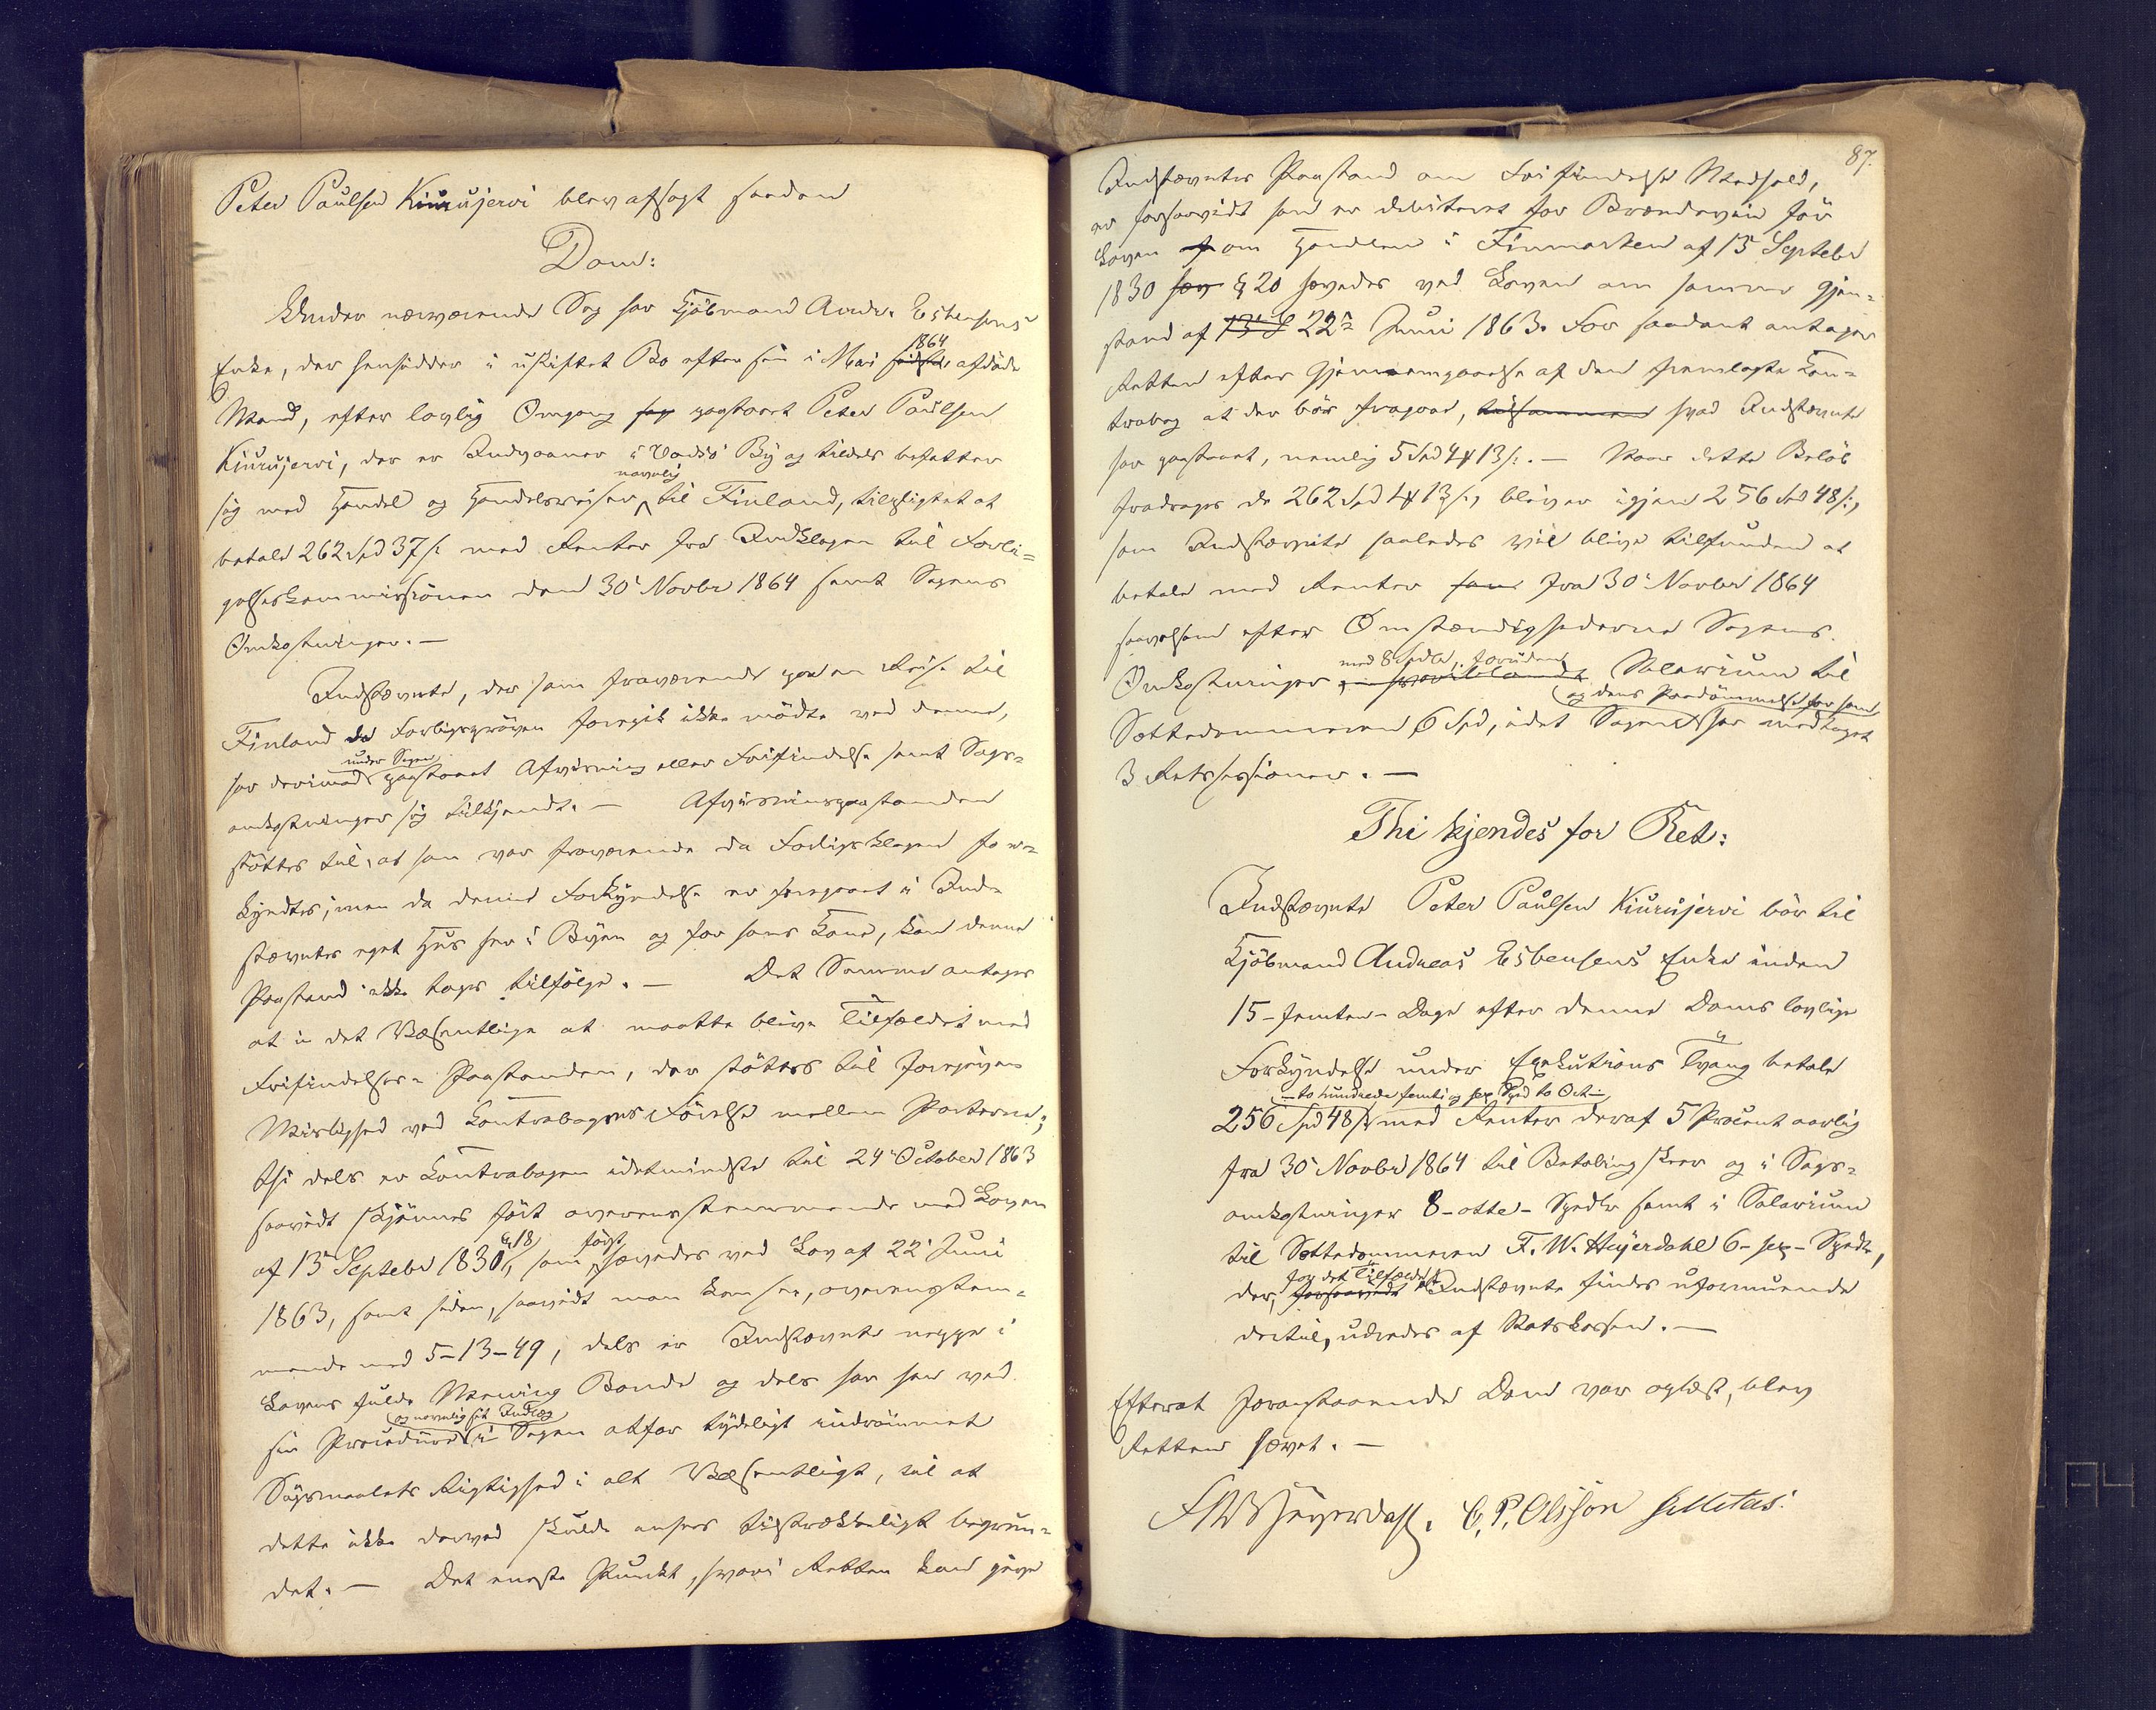 Peter Paulsen Kiurujervi blev afsagt saadan
Dom:
Under nærværende Sag har Kjöbmand Andr. Esbensens
1864
Enke, der hensidder i uskiftet Bo efter sin i Mai sidste afdöde
Mand, efter lovlig Omgang sag paastaaet Peter Paulsen
Kiurujervi, der er Indvaaner i Vadsö By og tildels befatter
navnlig
sig med Handel og Handelsreiser til Finland, tilpligtet at
betale 262 Spd 37 s. med Renter fra Indklagen til Forli-
gelseskommissionen den 30' Novbr 1864 samt Sagens
Omkostninger. —
Indstævnte, der som fraværende paa en Reise til
Finland da Forligsprøven foregik ikke mödte ved denne,
under Sagen
har derimod paastaaet Afvisning eller Frifindelse samt Sags-
omkostninger sig tilkjendt. — Afvisningspaastanden
støttes til, at han var fraværende da Forligsklagen for-
kyndtes; men da denne Forkyndelse er foregaaet i Ind-
stævntes eget Hus her i Byen og for hans Kone, kan denne
Paastand ikke tages tilfölge. — Det Samme antages
at i det Væsentlige at maatte blive Tilfældet med
Frifindelses-Paastanden, der støttes til foregiven
Mislighed ved Kontrabogens Förelse mellem Parterne;
thi dels er Kontrabogen idetmindste til 24' October 1863
saavidt skjönnes fört overensstemmende med Loven
§ 18, først
af 13' Septebr 1830, som hævedes ved Lov af 22' Juni
1863, samt siden, saavidt man kan see, overensstem-
mende med 5-13-49, dels er Indstævnte neppe i
Lovens fulde Mening Bonde og dels har han ved
og navnlig sit Indlæg
sin Procedure i Sagen altfor tydeligt indrømmet
Sögsmaalets Rigtighed i alt Væsentligt, til at
dette ikke derved skulde ansees tilstrækkeligt begrun-
det. — Det eneste Punkt, hvori Retten kan give
87.
Indstævntes Paastand om Frifindelse Medhold,
er forsaavidt han er debiteret for Brændeviin før
Loven f om Handlen i Finmarken af 13 Septebr
1830 hæv § 20 hævedes ved Loven om samme Gjen-
stand af 13' S 22de Juni 1863. For saadant antager
Retten efter Gjennemgaaelse af den fremlagte Kon-
trabog at der bör fragaae, tilsammen hvad Indstævnte
har paastaaet, nemlig 5 Spd 4 # 13 s. — Naar dette Belöb
fradrages de 262 Spd 1 # 13 s., bliver igjen 256 Spd 48 s.,
som Indstævnte saaledes vil blive tilfunden at
betale med Renter sam fra 30' Novbr 1864
saavelsom efter Omstændighederne Sagens
med 8 Spdlr, foruden
Omkostninger, Salarium til
og dens Paadömmelse for ham
Sættedommeren 6 Spd, idet Sagen har medtaget
3 Retssessioner. —
Thi kjendes for Ret:
Indstævnte Peter Paulsen Kiurujervi bör til
Kjöbmand Andreas Esbensens Enke inden
15 - femten - Dage efter denne Doms lovlige
Forkyndelse under Exekutions Tvang betale
- to hundrede femti og sex Spd to Ort -
256 Spd 48 s med Renter deraf 5 Procent aarlig
fra 30' Novbr 1864 til Betaling skeer og i Sags-
omkostninger 8 - otte - Spdlr samt i Salarium
til Sættedommeren F. W. Heyerdahl 6 - sex - Spdlr,
for det Tilfælde at
der, forsaavidt Indstævnte findes uformuende
dertil, udredes af Statskassen. —
Efterat foranstaaende Dom var oplæst, blev
Retten hævet. —
F W Heyerdahl. C. P. Olsson Hilitas.